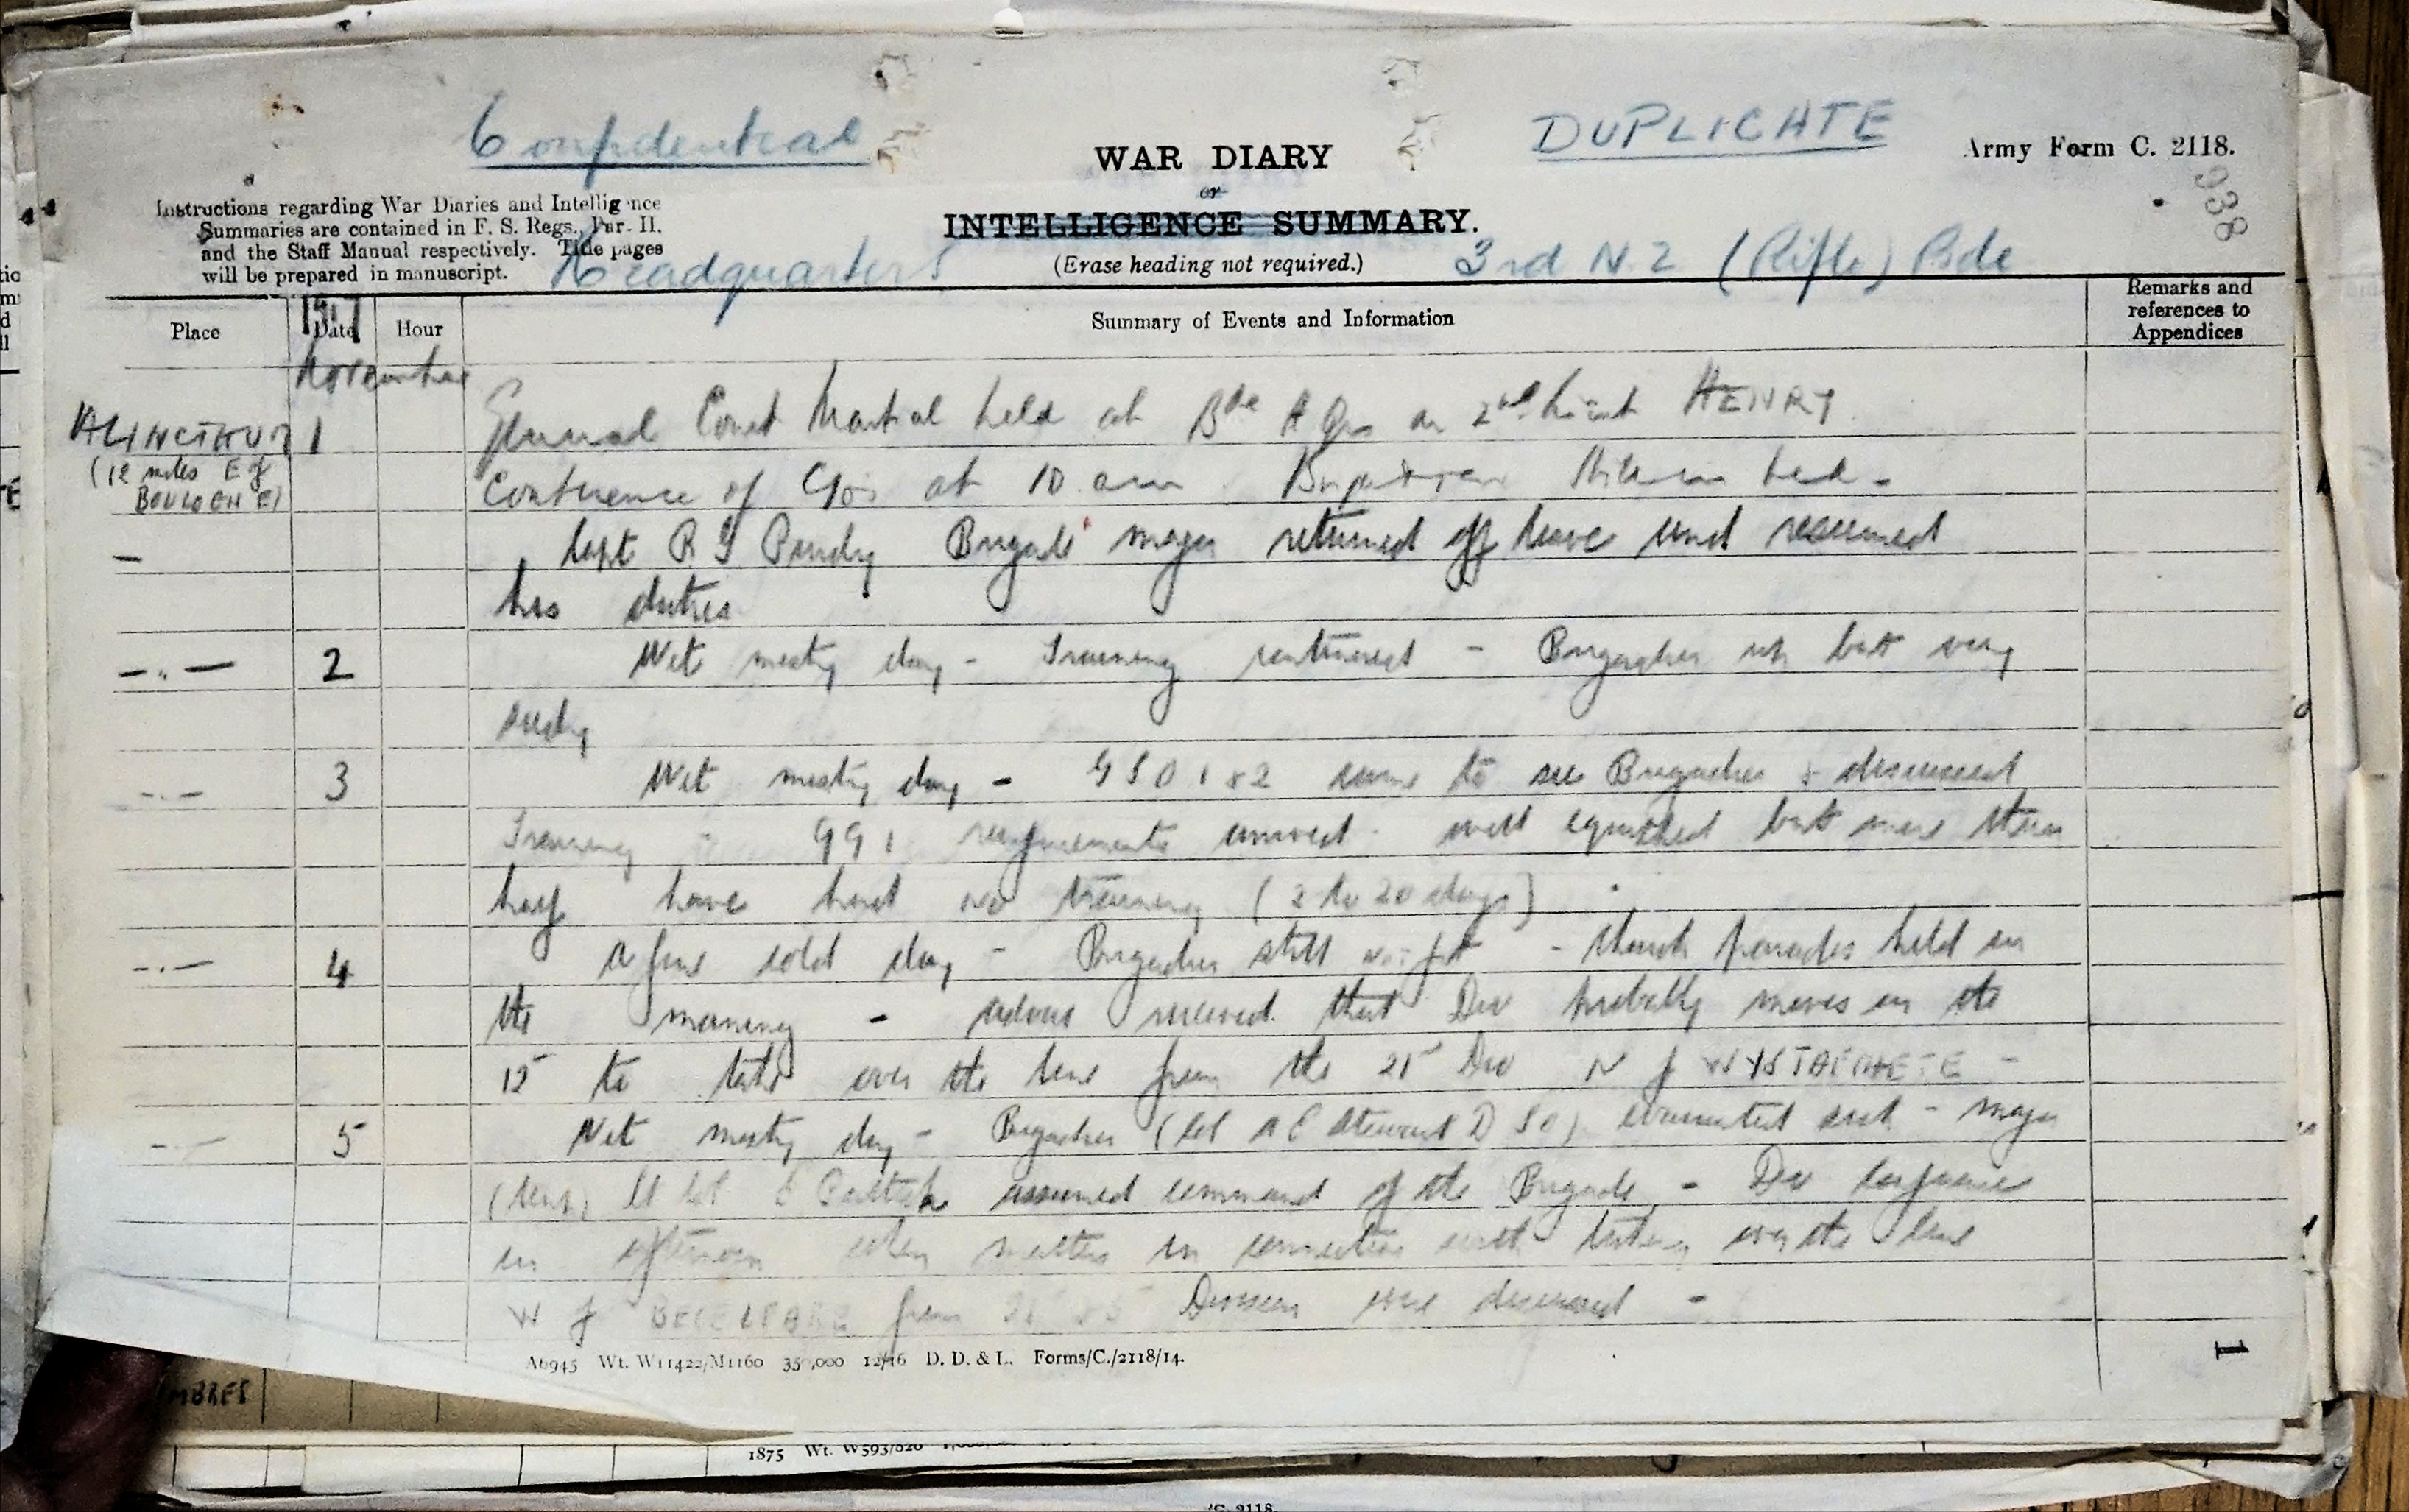 Confidential
DUPLICATE
WAR DIARY
Army Form C. 2118.
or
938
Instructions regarding War Diaries and Intelligence
Summaries are contained in F. S. Regs., Par. II.
and the Staff Manual respectively. Title pages
will be prepared in manuscript.
INTELLIGENCE SUMMARY.
(Erase heading not required.)
Headquarters
3rd N.Z (Rifle) Bde
Place
1917
Date
Hour
Summary of Events and Information
Remarks and
references to
Appendices
November
ALINCTHUN 1 General Court Martial held at Bde H Qrs on 2nd Lieut HENRY
(12 miles E of
BOULOGNE) Conference of COs at 10 am
Capt R G Purdy Brigade major returned off leave and resumed
his duties
2 Wet misty day - Training continued - Brigadier up but very
seedy
3 Wet misty day - GSO 1 & 2 came to see Brigadier & discussed
Training - 991 reinforcements arrived. well equipped but more than
half have had no training (2 to 20 days)
4 A fine cold day - Brigadier still not fit - church parades held in
the morning - advice received that Div probably moves on the
12 to take over the line from the 21 Div N of
5 Wet misty day - Brigadier (Col A E Stewart D S O) evacuated sick - major
(temp) Lt Col E Puttick assumed command of the Brigade - Div Conference
in afternoon when matters in connection with taking over the line
W of BECELAERE from 21 Division were discussed -
1
A6945 Wt. W11422/M1160 350,000 12/16 D. D. & L. Forms/C./2118/14.
1875 Wt. W593/826
C. 2118.